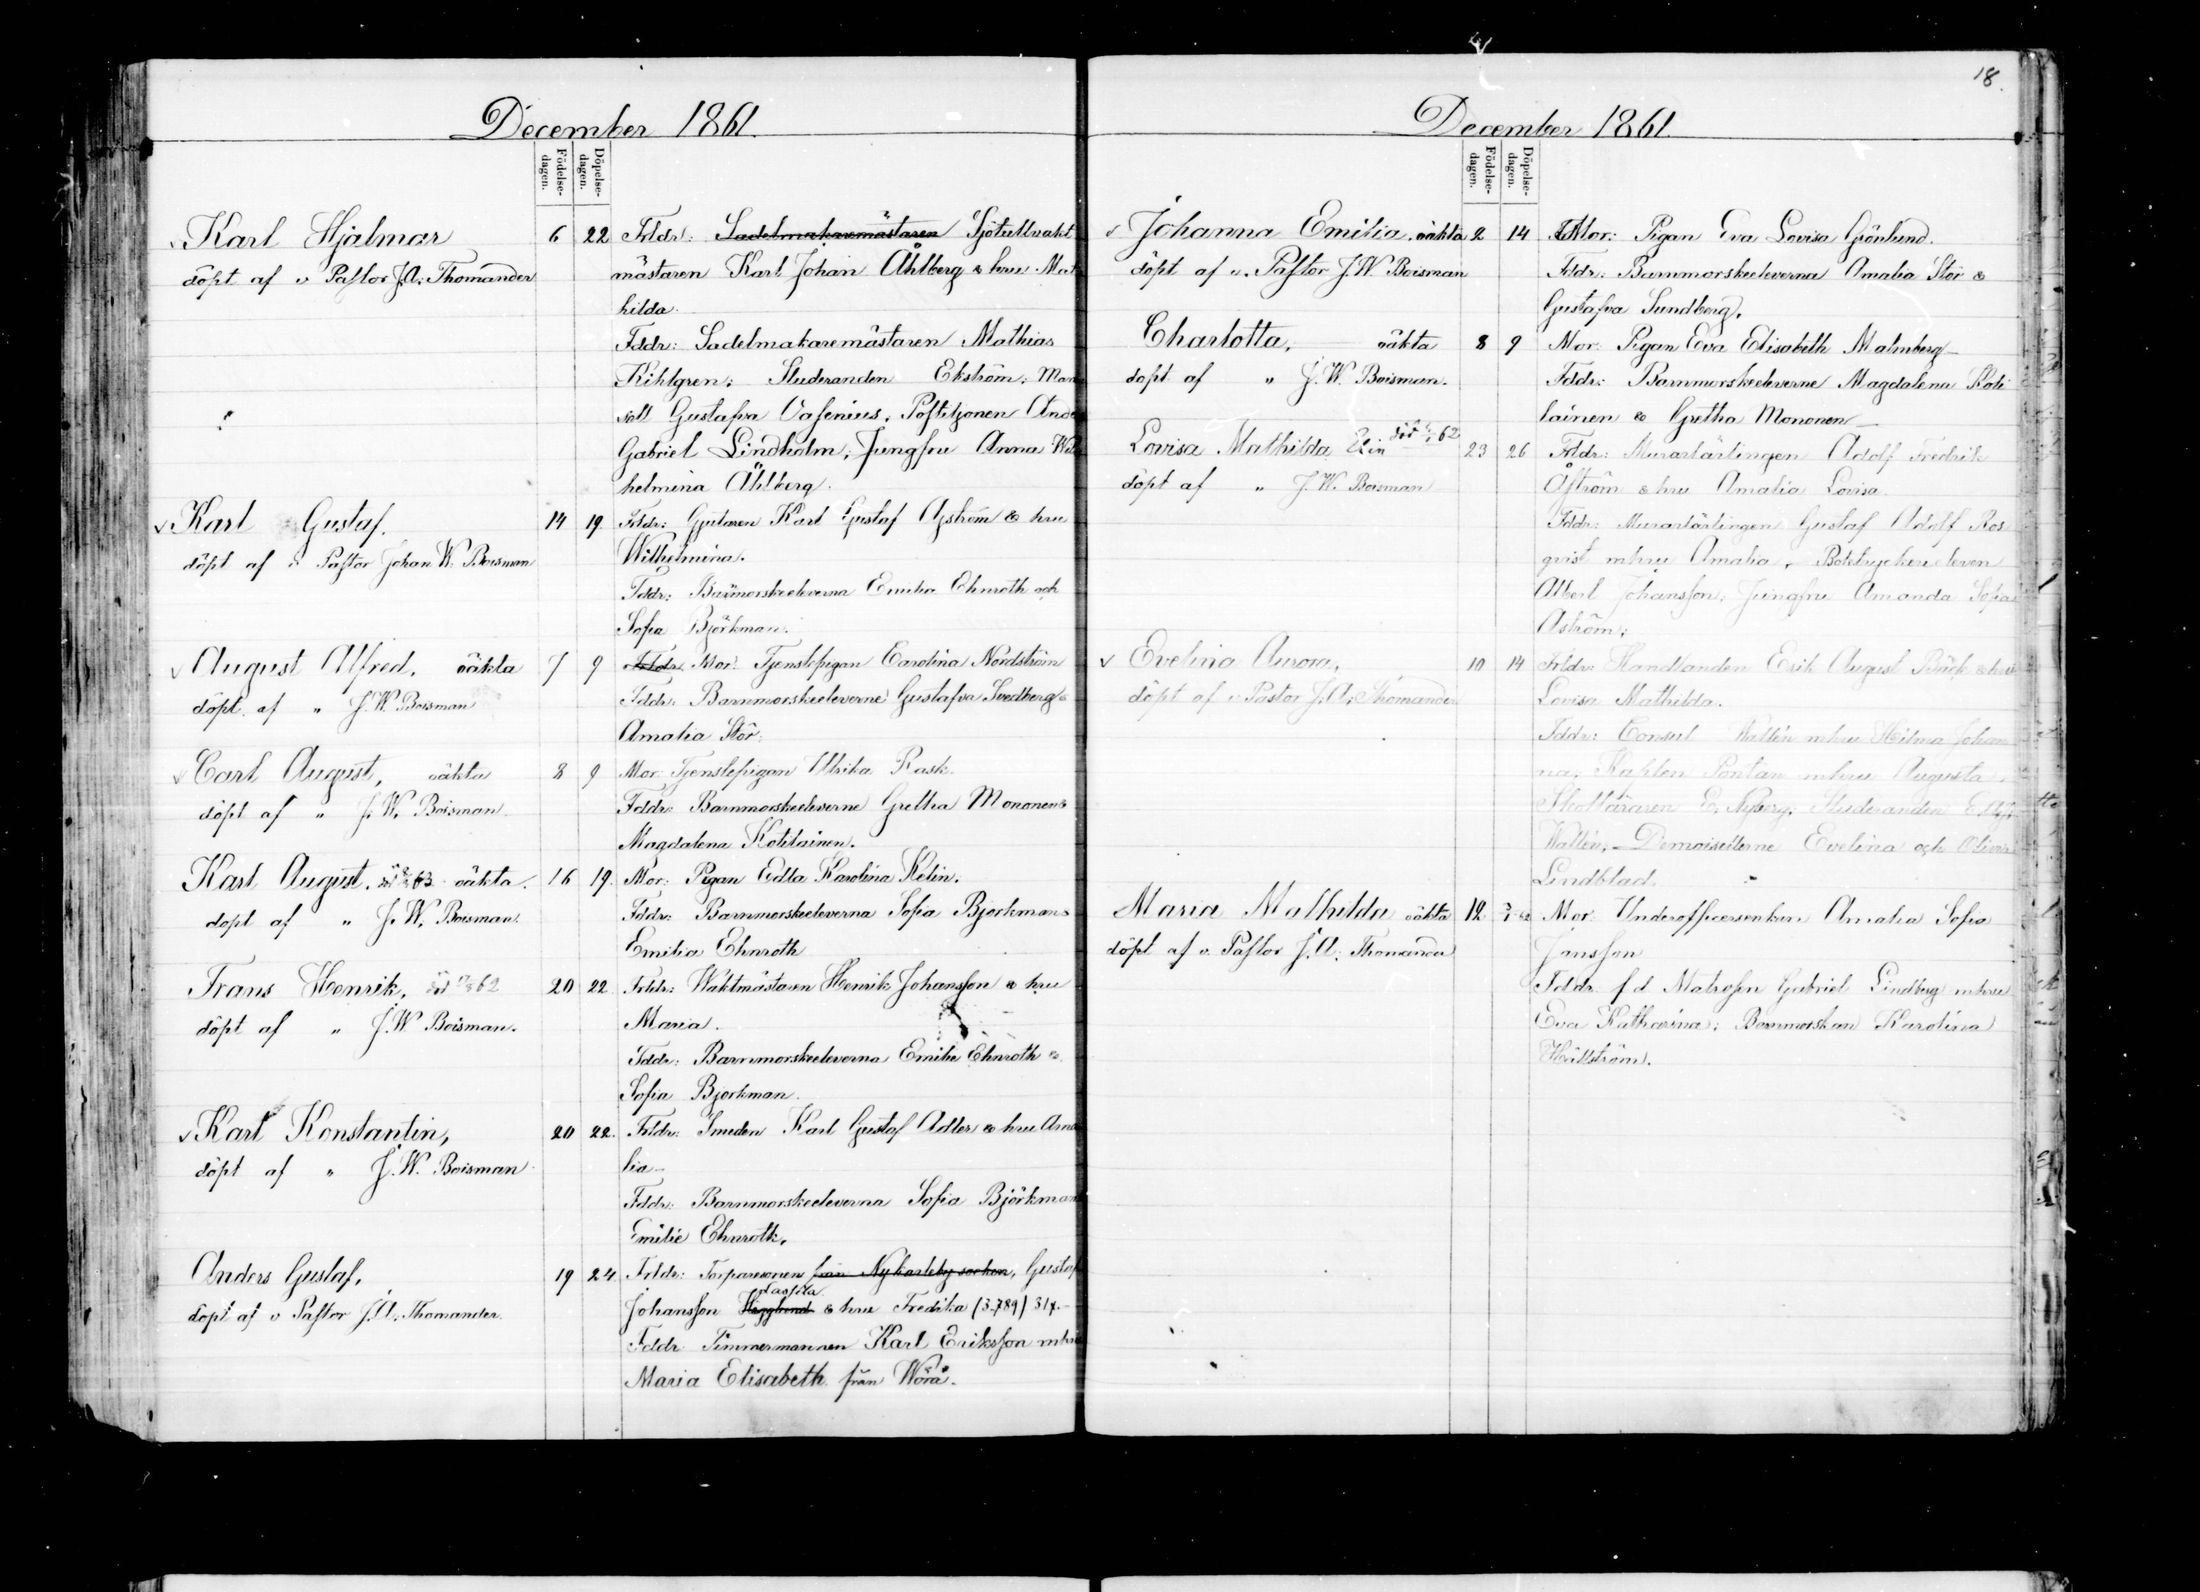 18.
December 1861.
Födelse-
dagen.
Döpelse-
dagen.
Karl Hjalmar 6 22 Frldr: Sadelmakaremästaren Sjötullvakt
döpt af v Pastor J.A. Thomander mästaren Karl Johan Åhlberg & hru Mat
hilda.
Fddr: Sadelmakaremästaren Mathias
Kihlgren; Studeranden Ekström; Mam
sell Gustafva Vasenius; Postiljonen
Gabriel Lindholm; Jungfru Anna Wil
helmina Åhlberg.
Karl Gustaf. 14 19 Frldr: Gjutaren Karl Gustaf & hru
döpt af v Pastor Johan W. Boisman Wilhelmina.
Fddr: Barnmorskeeleverna Emilia Ehnroth och
Sofia Björkman.
August Alfred. oäkta 7 9 Frldr Mor: Tjenstepigan Carolina Nordström
döpt af " J.W. Boisman Fddr: Barnmorskeeleverne Gustafva Svedberg &
Amalia Stör.
Carl August, oäkta 8 9 Mor Tjenstepigan Ulrika Rask.
döpt af " J. W. Boisman. Fddr: Barnmorskeeleverne Gretha Mononen &
Magdalena Kotilainen.
Karl August. död 63 oäkta. 16 19. Mor: Pigan Edla Karolina Kelin.
döpt af " J. W. Boisman. Fddr: Barnmorskeeleverna Sofia Bjorkman &
Emilia Ehnroth
Frans Henrik, död 62 20 22 Frldr: Waktmästaren Henrik Johansson & hru
döpt af " J.W Boisman. Maria.
Fddr: Barnmorskeeleverna Emilie Ehnroth &
Sofia Bjorkman.
Karl Konstantin, 20 22. Frldr: Smeden Karl Gustaf Adler & hru Ama
döpt af " J.W. Boisman lia
Fddr: Barnmorskeeleverna Sofia Björkman
Emilie Ehnroth.
Anders Gustaf, 19 24 Frldr: Torparesonen från Nykarleby socken, Gustaf
döpt af v Pastor J.A. Thomander. Johansson Hägglund & hru Fredika (3.789) 317.
Fddr Timmermannen Karl Eriksson mhru
Maria Elisabeth från Wörå.
December 1861.
Födelse-
dagen.
Döpelse-
dagen.
Johanna Emilia. oäkta 2 14 Mor: Pigan Eva Lovisa Grönlund.
döpt af v. Pastor J.W. Boisman Fddr: Barnmorskeeleverna Amalia Stör &
Gustafva Sundberg.
Charlotta, oäkta 8 9 Mor: Pigan Eva Elisabeth Malmberg
döpt af " J.W. Boisman. Fddr: Barnmorskeeleverne Magdalena Koti
lainen & Gretha Mononen
Lovisa Mathilda Elin död 62 23 26 Frldr: Murarlärlingen Adolf Fredrik
döpt af " J.W. Boisman Åström & hru Amalia Lovisa.
Fddr: Murarlärlingen Gustaf Adolf Ros
qvist mhru Amalia, Boktryckerieleven
Albert Johansson; Jungfru Amanda Sofia
Aström;
Evelina Aurora, 10 14 Frldr: Handlanden Erik August Bäck & hru
döpt af v Pastor J.A. Thomander Lovisa Mathilda.
Fddr: Consul Wallén mhru Hilma Johan
na; Kapten Pontan mhru Augusta,
Skolläraren E. Nyberg; Studeranden
Wallén; Demoisellerne Evelina och Olivia
Lindblad.
Maria Mathilda oäkta 12 Mor Underofficersenkan Amalia Sofia
döpt af v. Pastor J.A. Thomander Jansson
Fddr f d Matrosen Gabriel Lindberg mhru
Eva Katharina; Barnmorskan Karolina
Hällström.